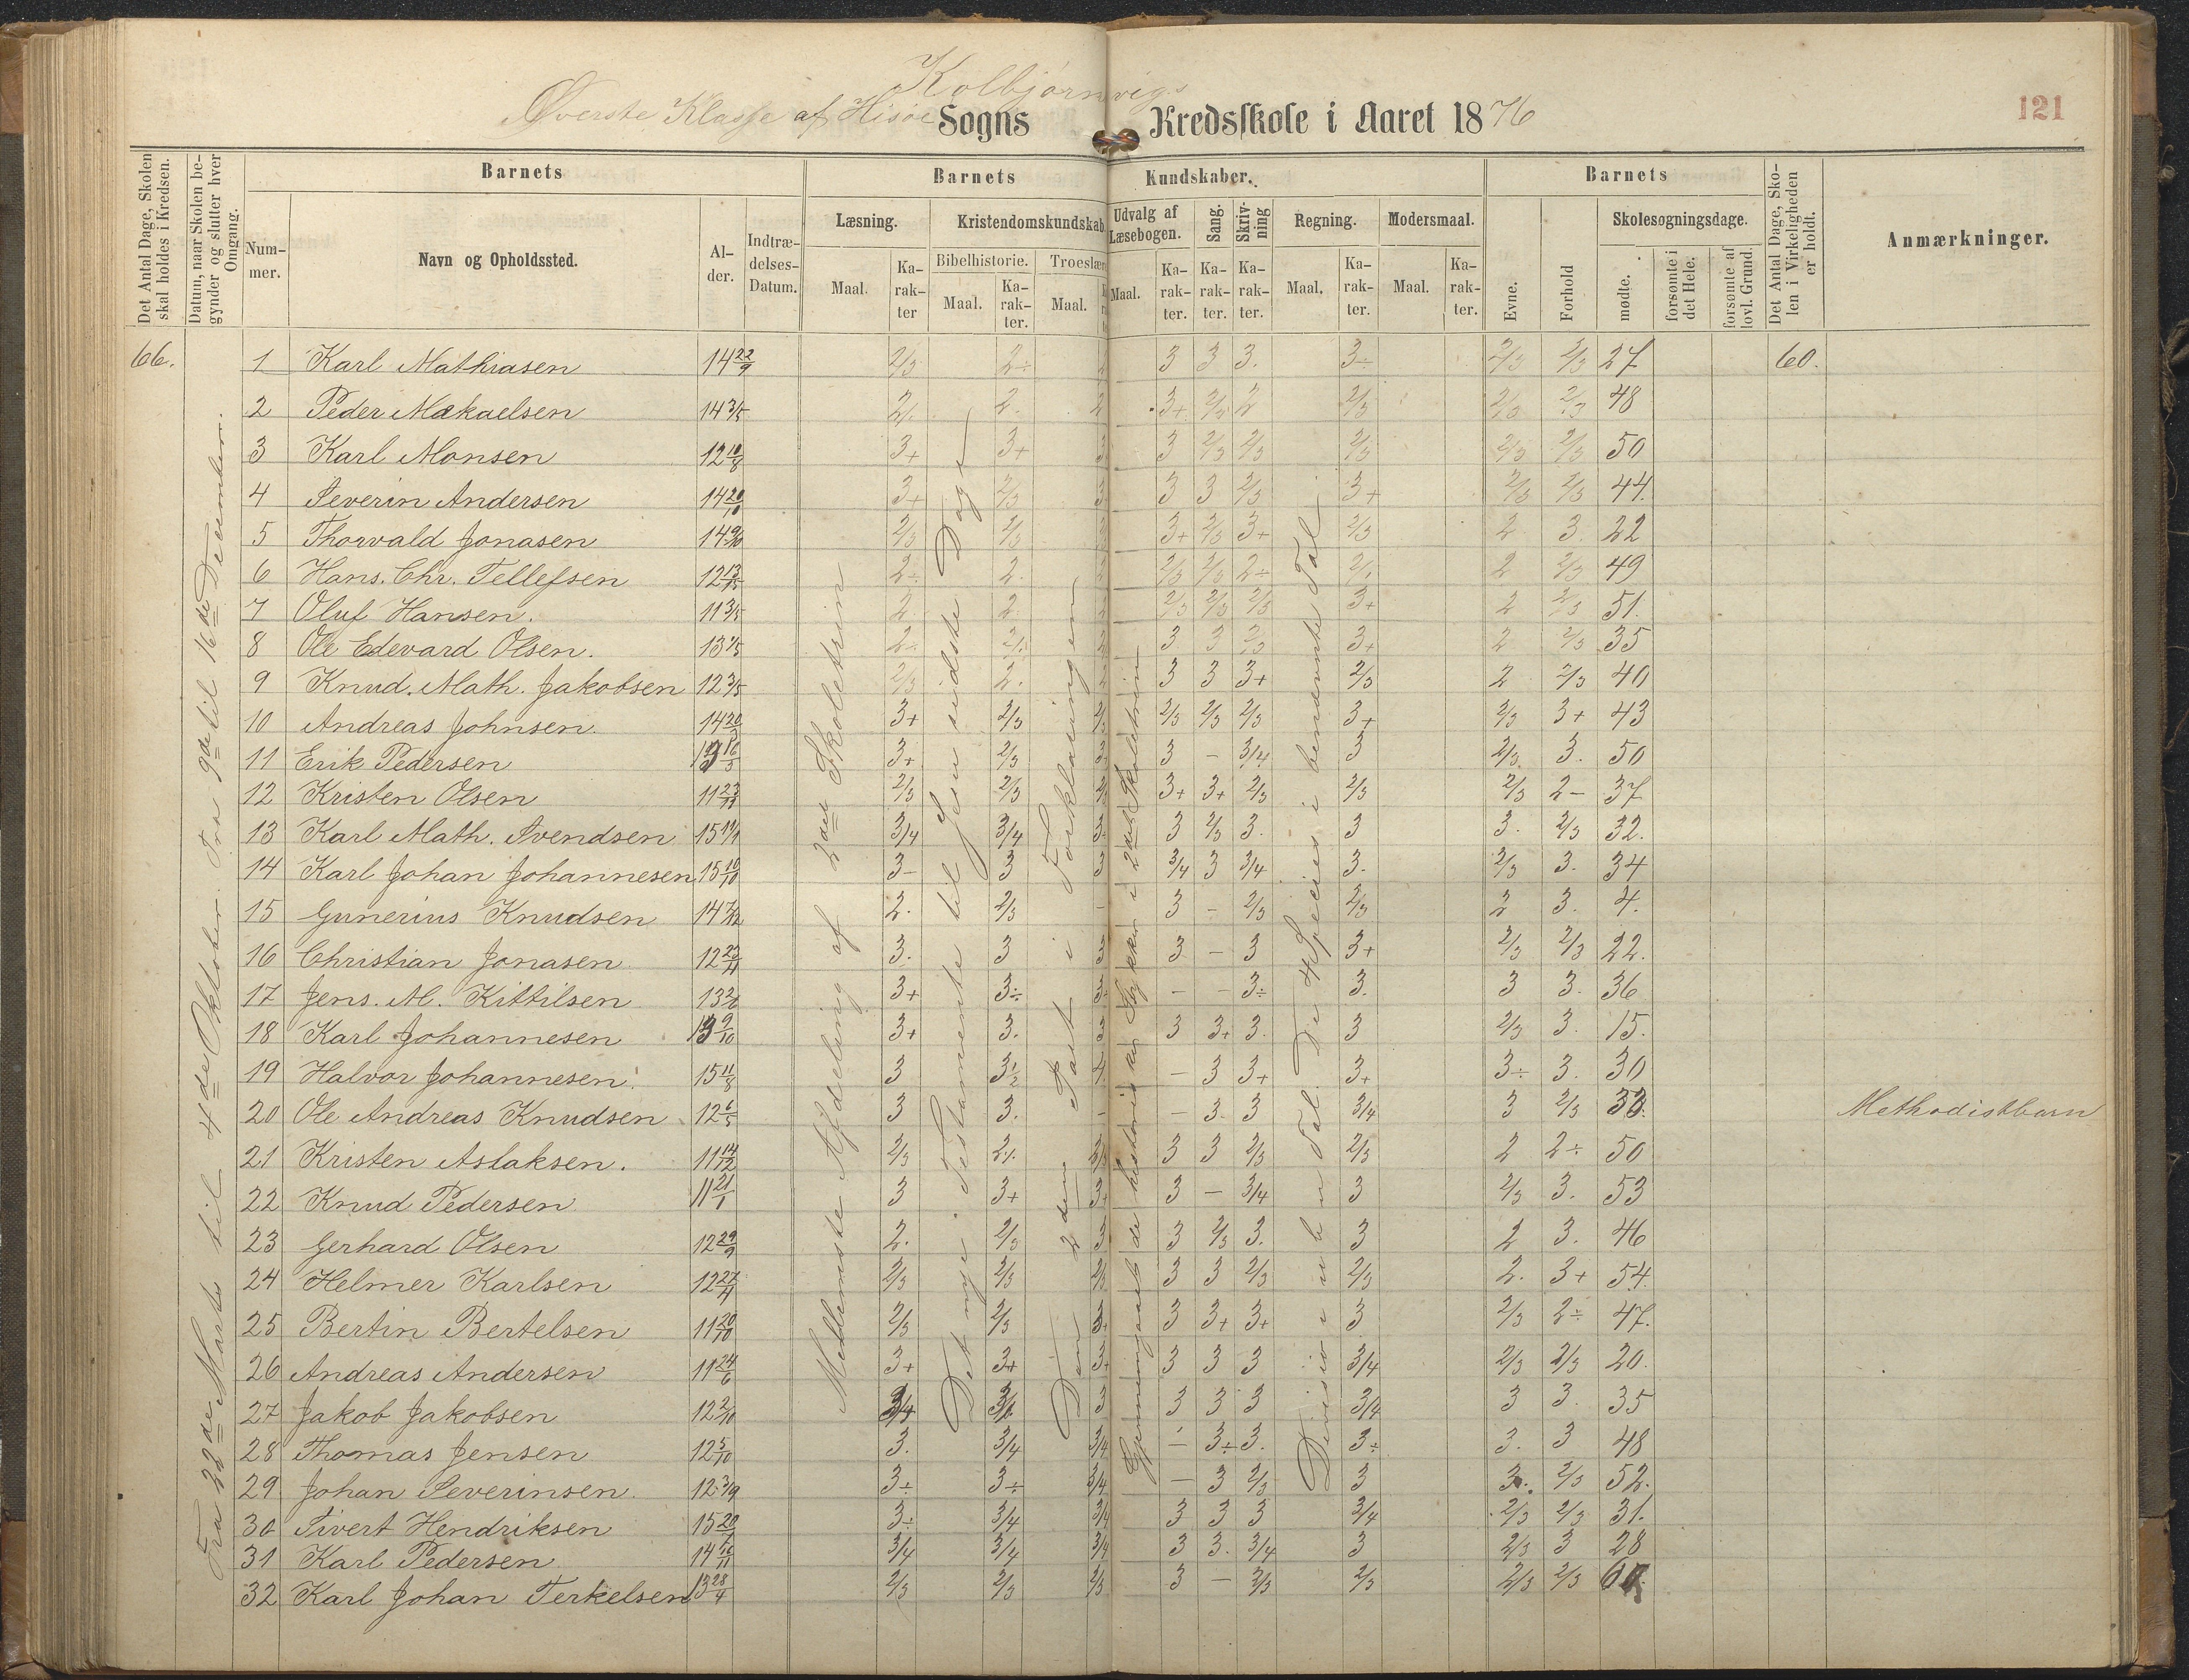 Kolbjørnsvigs
Øverste Klasse af Hisøe Sogns Kredsskole i Aaret 1876
121
Det Antal Dage, Skolen skal holdes i Kredsen.
Datum, naar Skolen begynder og slutter hver Omgang.
Barnets
Barnets Kundskaber.
Barnets
Det Antal Dage, Skolen i Virkeligheden er holdt.
Anmærkninger.
Nummer.
Navn og Opholdssted.
Alder.
Indtrædelses-Datum.
Læsning.
Kristendomskundskab.
Udvalg af Læsebogen.
Sang.
Skrivning
Regning.
Modersmaal.
Evne.
Forhold
Skolesøgningsdage.
Bibelhistorie.
Troeslære
Maal.
Karakter
Maal.
Karakter.
Maal.
Maal.
Karakter.
Karakter.
Karakter.
Maal.
Karakter.
Maal.
Karakter.
mødte.
forsømte i det Hele.
forsømte af lovl. Grund.
66.
Fra 22de Marts til 4de Oktober. Fra 9de til 16de December.
Mellemste Afdeling af 2det Skoletrin
Det nye Testamente til Jesu sidste Dage
Den 2den Part i Forklaringen
Gjennemgaaet de historiske Stykker i 2det Skoletrin
Division i ubn Tal. De 4 Species i benævnte Tal
1 Karl Mathiasen 14 22/9 2/3 2÷ 3 3 3. 3÷ 2/3 2/3 27 60.
2 Peder Mekaelsen 14 3/5 2/. 2. 2 3+ 2/3 2 2/3 2/3 2/3 48
3 Karl Monsen 12 10/8 3+ 3+ 3 3 2/3 2/3 2/3 2/3 2/3 50
4 Severin Andersen 14 20/10 3+ 2/3 3 3 3 2/3 3+ 2/3 2/3 44.
5 Thorvald Jonasen 14 9/10 2/3 2/3 3+ 2/3 3+ 2/3 2 3. 22
6 Hans. Chr. Tellefsen 12 13/15 2÷ 2. 2/3 2/3 2÷ 2/. 2 2/3 49
7 Oluf Hansen. 11 3/5 2. 2. 2/3 2/3 2/3 3+ 2 2/3 51.
8 Ole Edevard Olsen. 13 1/5 2÷ 2/. 3 3 2/3 3+ 2 2/3 35
9 Knud. Math. Jakobsen 12 3/5 2/3 2. 3 3 3+ 2/3 2 2/3 40
10 Andreas Johnsen. 14 20/ 3+ 2/3 2/3 2/3 2/3 2/3 3+ 2/3 3+ 43
11 Erik Pedersen 13 16/5 3+ 2/3 3 3 - 3/4 3 2/3. 3. 50
12 Kristen Olsen 11 23/11 2/3 2/3 2/3 3+ 3+ 2/3 2/3 2/3 2- 37
13 Karl Math. Svendsen 15 19/1 3/4 3/4 3. 3 2/3 3. 3 3. 2/3 32.
14 Karl Johan Johannesen 15 10/10 3- 3 3 3/4 3 3/4 3. 2/3 3. 34
15 Gunerius Knudsen 14 7/12 2. 2/3 - 3 - 2/3 2/3 2 3. 4.
16 Christian Jonasen 12 22/11 3. 3 3 3 - 3 3+ 2/3 2/3 22.
17 Jens. M. Kittilsen 13 2/6 3+ 3÷ 3. - - 3÷ 3. 3 3. 36
18 Karl Johannesen 13 9/10 3+ 3. 3 3 3+ 3. 3 2/3 3. 15.
19 Halvor Johannesen. 15 11/8 3 3 1/2 4. - 3 3+ 3+ 3÷ 3. 30
20 Ole Andreas Knudsen 12 6/5 3 3. - - 3. 3 3/4 3 2/3 33. Methodistbarn
21 Kristen Aslaksen. 11 14/12 2/3 2/. 2/3 3 3 2/3 2/3 2 2÷ 50
22 Knud Pedersen 11 21/1 3 3+ 3+ 3 - 3/4 3 2/3 3. 53
23 Gerhard Olsen 12 29/9 2. 2/3 3 3 2/3 3. 3 2 3. 46
24 Helmer Karlsen 12 27/11 2/3 2/3 2/3 3 3 2/3 2/3 2. 3+ 54.
25 Bertin Bertelsen 11 20/10 2/3 2/3 3+ 3 3+ 3+ 3 2/3 2÷ 47.
26 Andreas Andersen 11 24/6 3+ 3+ 3+ 3 3 3 3/4 2/3 2/3 20.
27 Jakob Jakobsen 12 2/10 3/4 3/4 3 3 3 3 3/4 3 3. 35
28 Thomas Jensen 12 5/10 3. 3/4 3/4 - 3÷ 3. 3÷ 3. 3 48
29 Johan Severinsen. 12 3/9 3÷ 3÷ 3/4 - 3 2/3 3 3. 2/3 52.
30 Sivert Hendriksen 15 20/ 3÷ 3/4 3/4 3 3 3 3/4 2/3 2/3 31.
31 Karl Pedersen 14 16/11 3/4 3/4 3/4 3 3. 3/4 3 2/3 3 28
32 Karl Johan Terkelsen 13 28/4 2/3 2/3 2/3 3 - 2/3 2/3 2/3 2/3